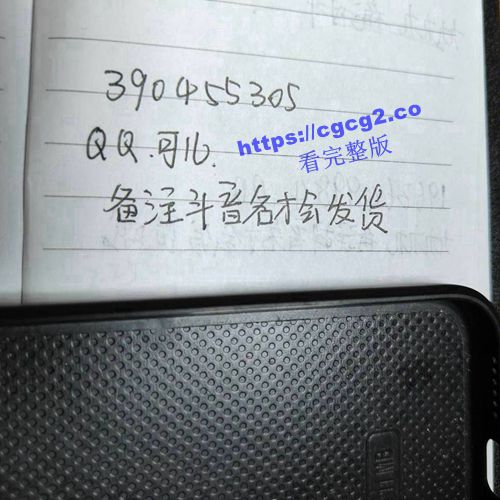 390455305
QQ.可加.
https://cgcg2.co
看完整版
备注斗音名才会发货